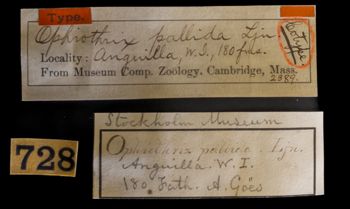 Type.
Ophiothrix pallida Ljn.
Cotype
Locality: Anguilla, W.I., 180 fms.
From Museum Comp. Zoology, Cambridge, Mass.
2389.
Stockholm Museum
Ophiothrix pallida Ljn.
Anguilla. W. I.
180 Fath. A. Goës
728